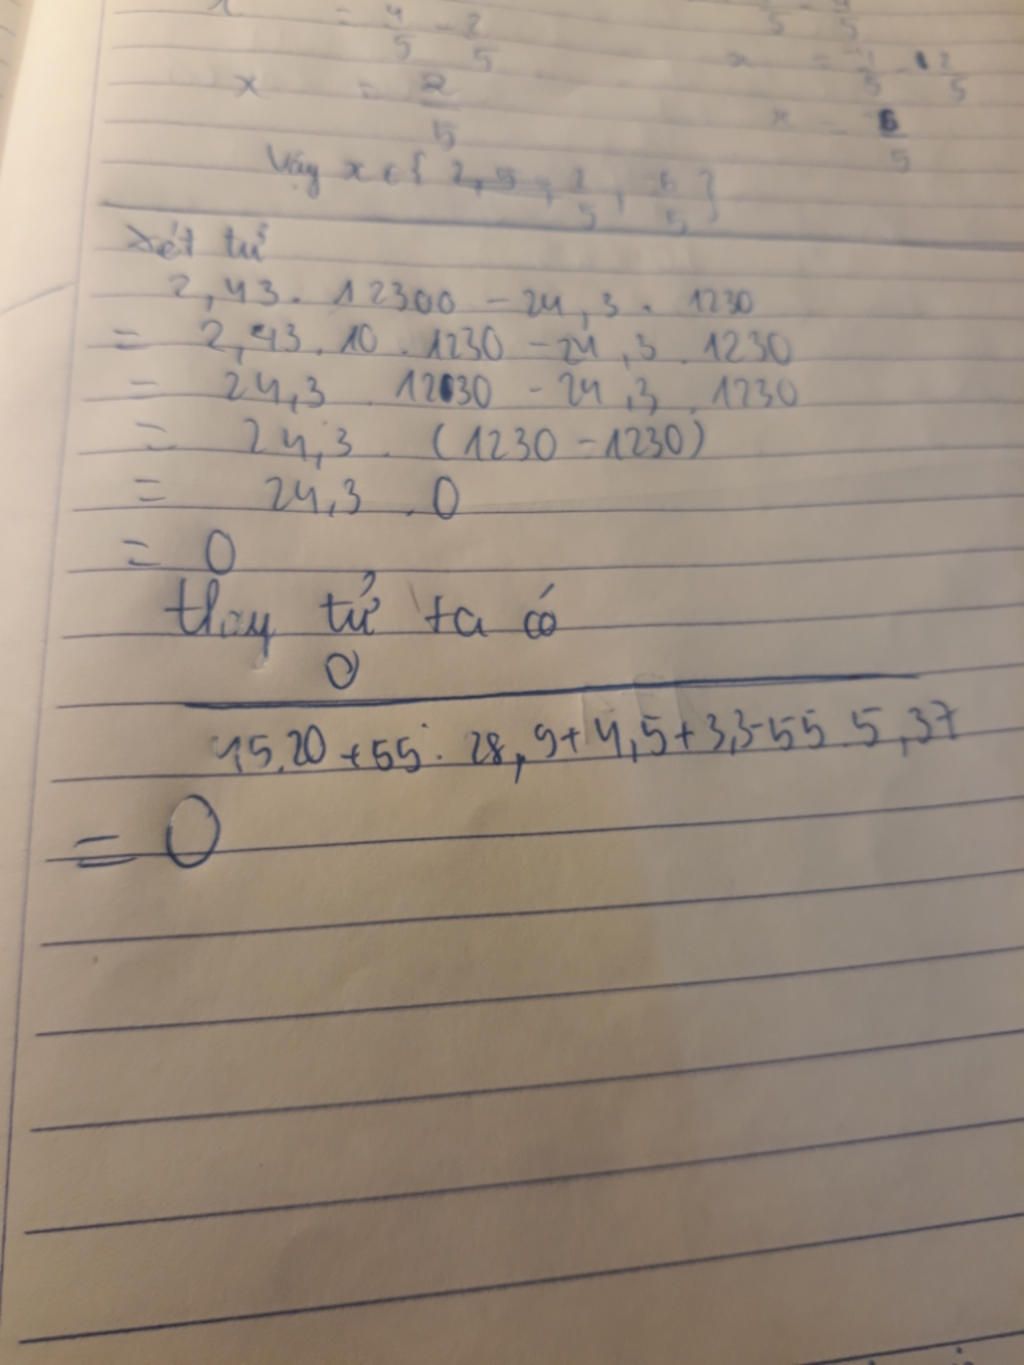 = 4/5 - 2/5
x = 2/5
x = 6/5
Vậy x ∈ { 2,5 ; 2/5 ; 6/5 }
Xét tử
2,43 . 12300 - 24,3 . 1230
= 2,43 . 10 . 1230 - 24,3 . 1230
= 24,3 . 1230 - 24,3 . 1230
= 24,3 . (1230 - 1230)
= 24,3 . 0
= 0
thay tử ta có
0
45.20 + 55 . 28,9 + 4,5 + 3,3 - 55 . 5,37
= 0